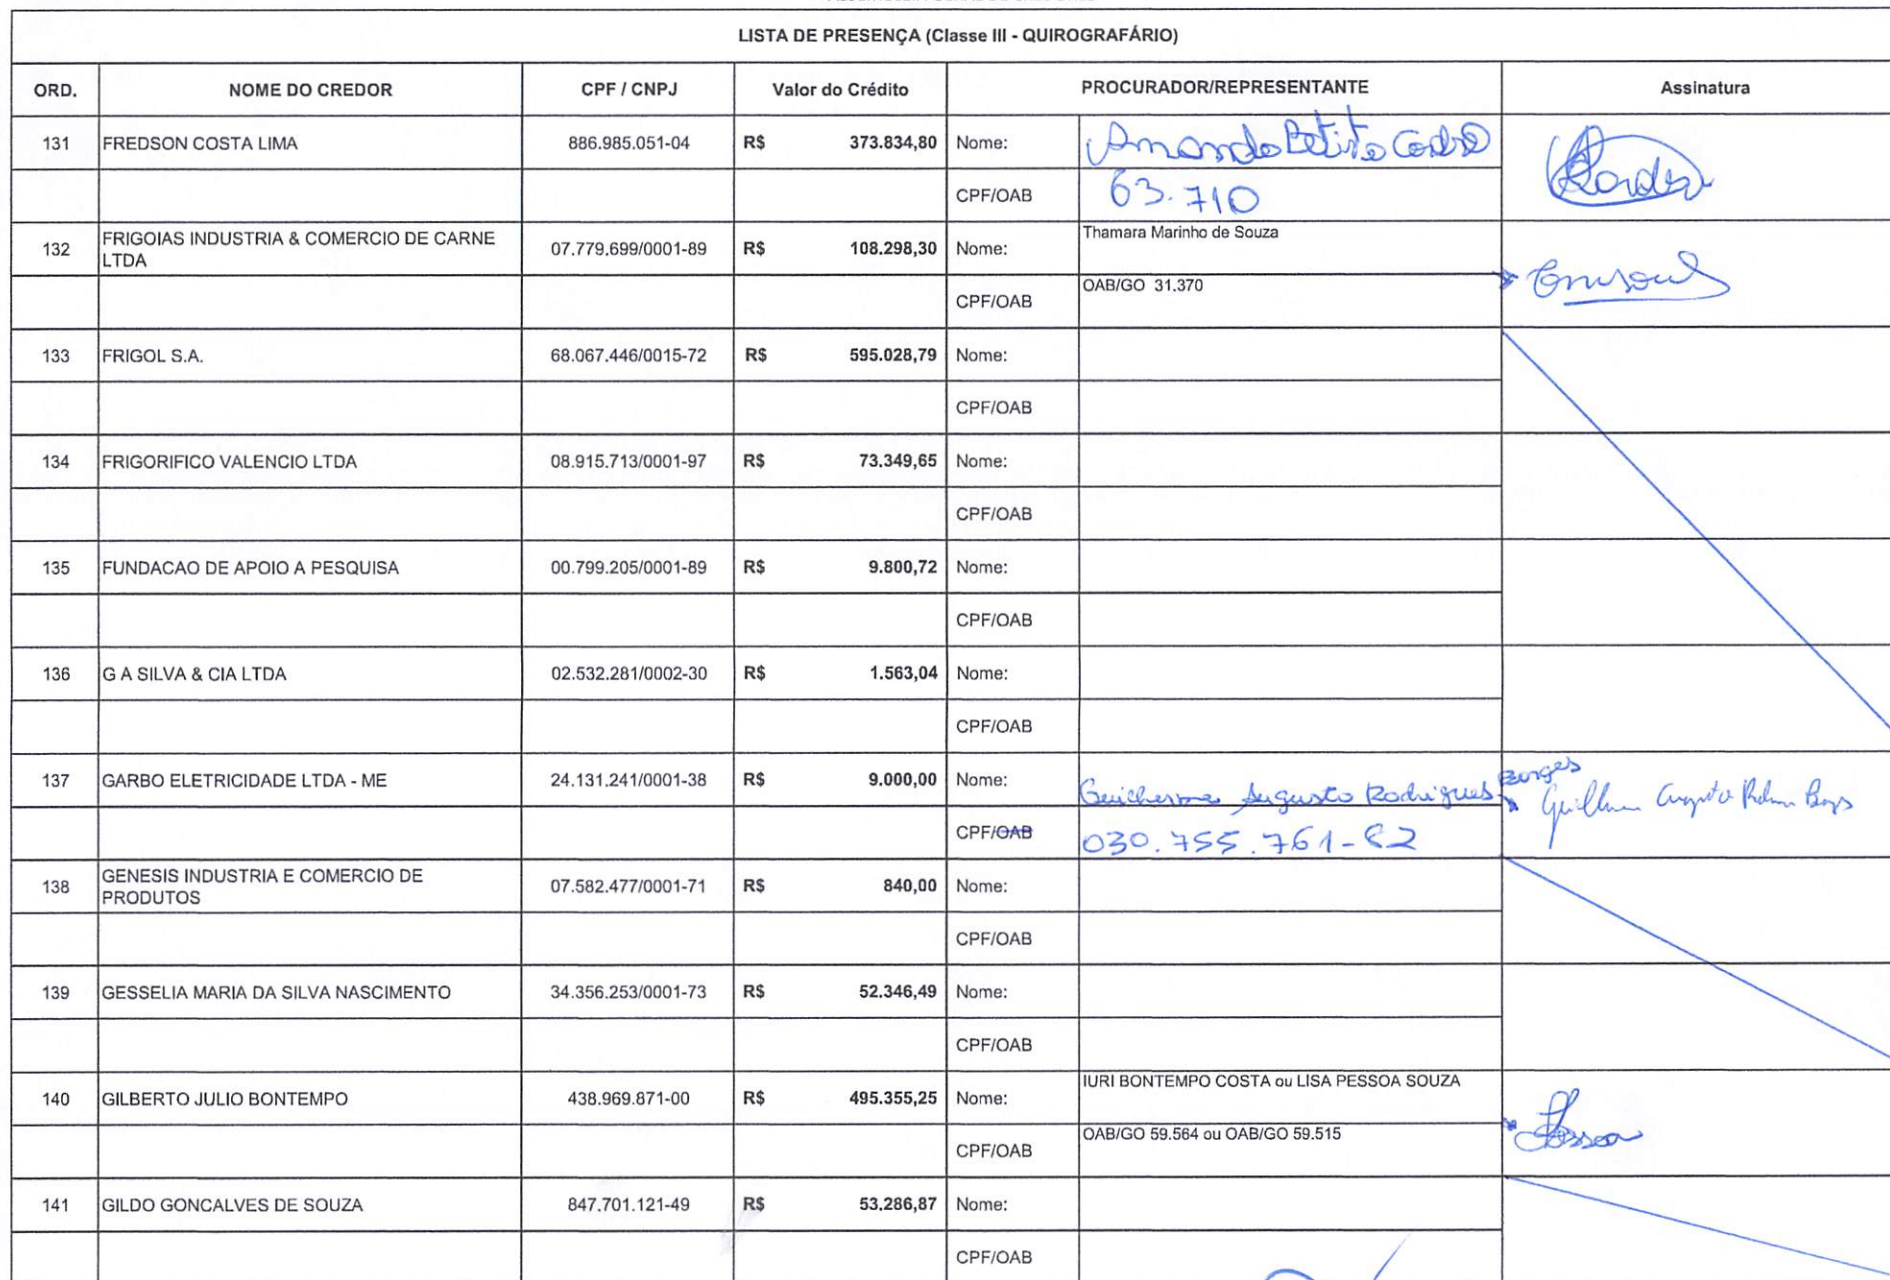 LISTA DE PRESENÇA (Classe III - QUIROGRAFÁRIO)
ORD. NOME DO CREDOR CPF / CNPJ Valor do Crédito PROCURADOR/REPRESENTANTE Assinatura
131 FREDSON COSTA LIMA 886.985.051-04 R$ 373.834,80 Nome:
CPF/OAB 63.710
132 FRIGOIAS INDUSTRIA & COMERCIO DE CARNE LTDA 07.779.699/0001-89 R$ 108.298,30 Nome: Thamara Marinho de Souza
CPF/OAB OAB/GO 31.370
133 FRIGOL S.A. 68.067.446/0015-72 R$ 595.028,79 Nome:
CPF/OAB
134 FRIGORIFICO VALENCIO LTDA 08.915.713/0001-97 R$ 73.349,65 Nome:
CPF/OAB
135 FUNDACAO DE APOIO A PESQUISA 00.799.205/0001-89 R$ 9.800,72 Nome:
CPF/OAB
136 G A SILVA & CIA LTDA 02.532.281/0002-30 R$ 1.563,04 Nome:
CPF/OAB
137 GARBO ELETRICIDADE LTDA - ME 24.131.241/0001-38 R$ 9.000,00 Nome: Guilherme Augusto Rodrigues Borges
CPF/OAB 030.755.761-82
138 GENESIS INDUSTRIA E COMERCIO DE PRODUTOS 07.582.477/0001-71 R$ 840,00 Nome:
CPF/OAB
139 GESSELIA MARIA DA SILVA NASCIMENTO 34.356.253/0001-73 R$ 52.346,49 Nome:
CPF/OAB
140 GILBERTO JULIO BONTEMPO 438.969.871-00 R$ 495.355,25 Nome: IURI BONTEMPO COSTA ou LISA PESSOA SOUZA
CPF/OAB OAB/GO 59.564 ou OAB/GO 59.515
141 GILDO GONCALVES DE SOUZA 847.701.121-49 R$ 53.286,87 Nome:
CPF/OAB